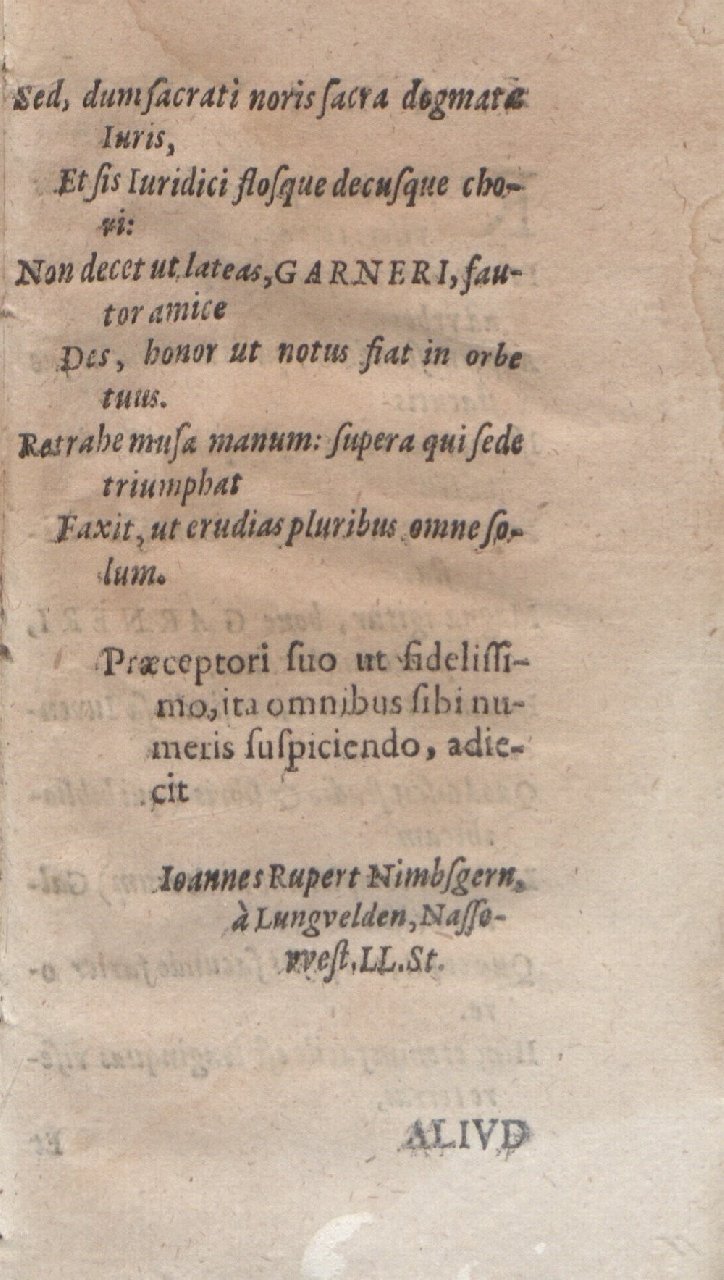 Sed, dum ſacrati noris ſacra dogmata
Iuris,
Et ſis Iuridici floſque decuſque cho-
ri:
Non decet ut lateas, GARNERI, fau-
tor amice
Des, honor ut notus fiat in orbe
tuus.
Retrahe muſa manum: ſupera qui ſede
triumphat
Faxit, ut erudias pluribus omne ſo-
lum.
Præceptori ſuo ut fideliſſi-
mo, ita omnibus ſibi nu-
meris ſuſpiciendo, adie-
cit
Ioannes Rupert Nimbſgern,
à Lungvelden, Naſſo-
vveſt. LL. St.
ALIVD